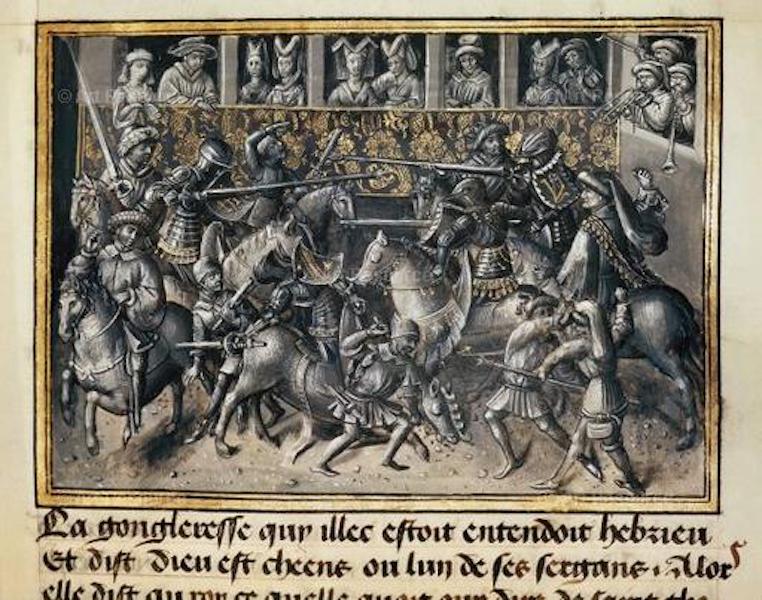 La gongleresse quy illec estoit entendoit hebrieu
Et dist dieu est cheens ou lun de ses sergans . Alors
elle dist au roy ce quelle